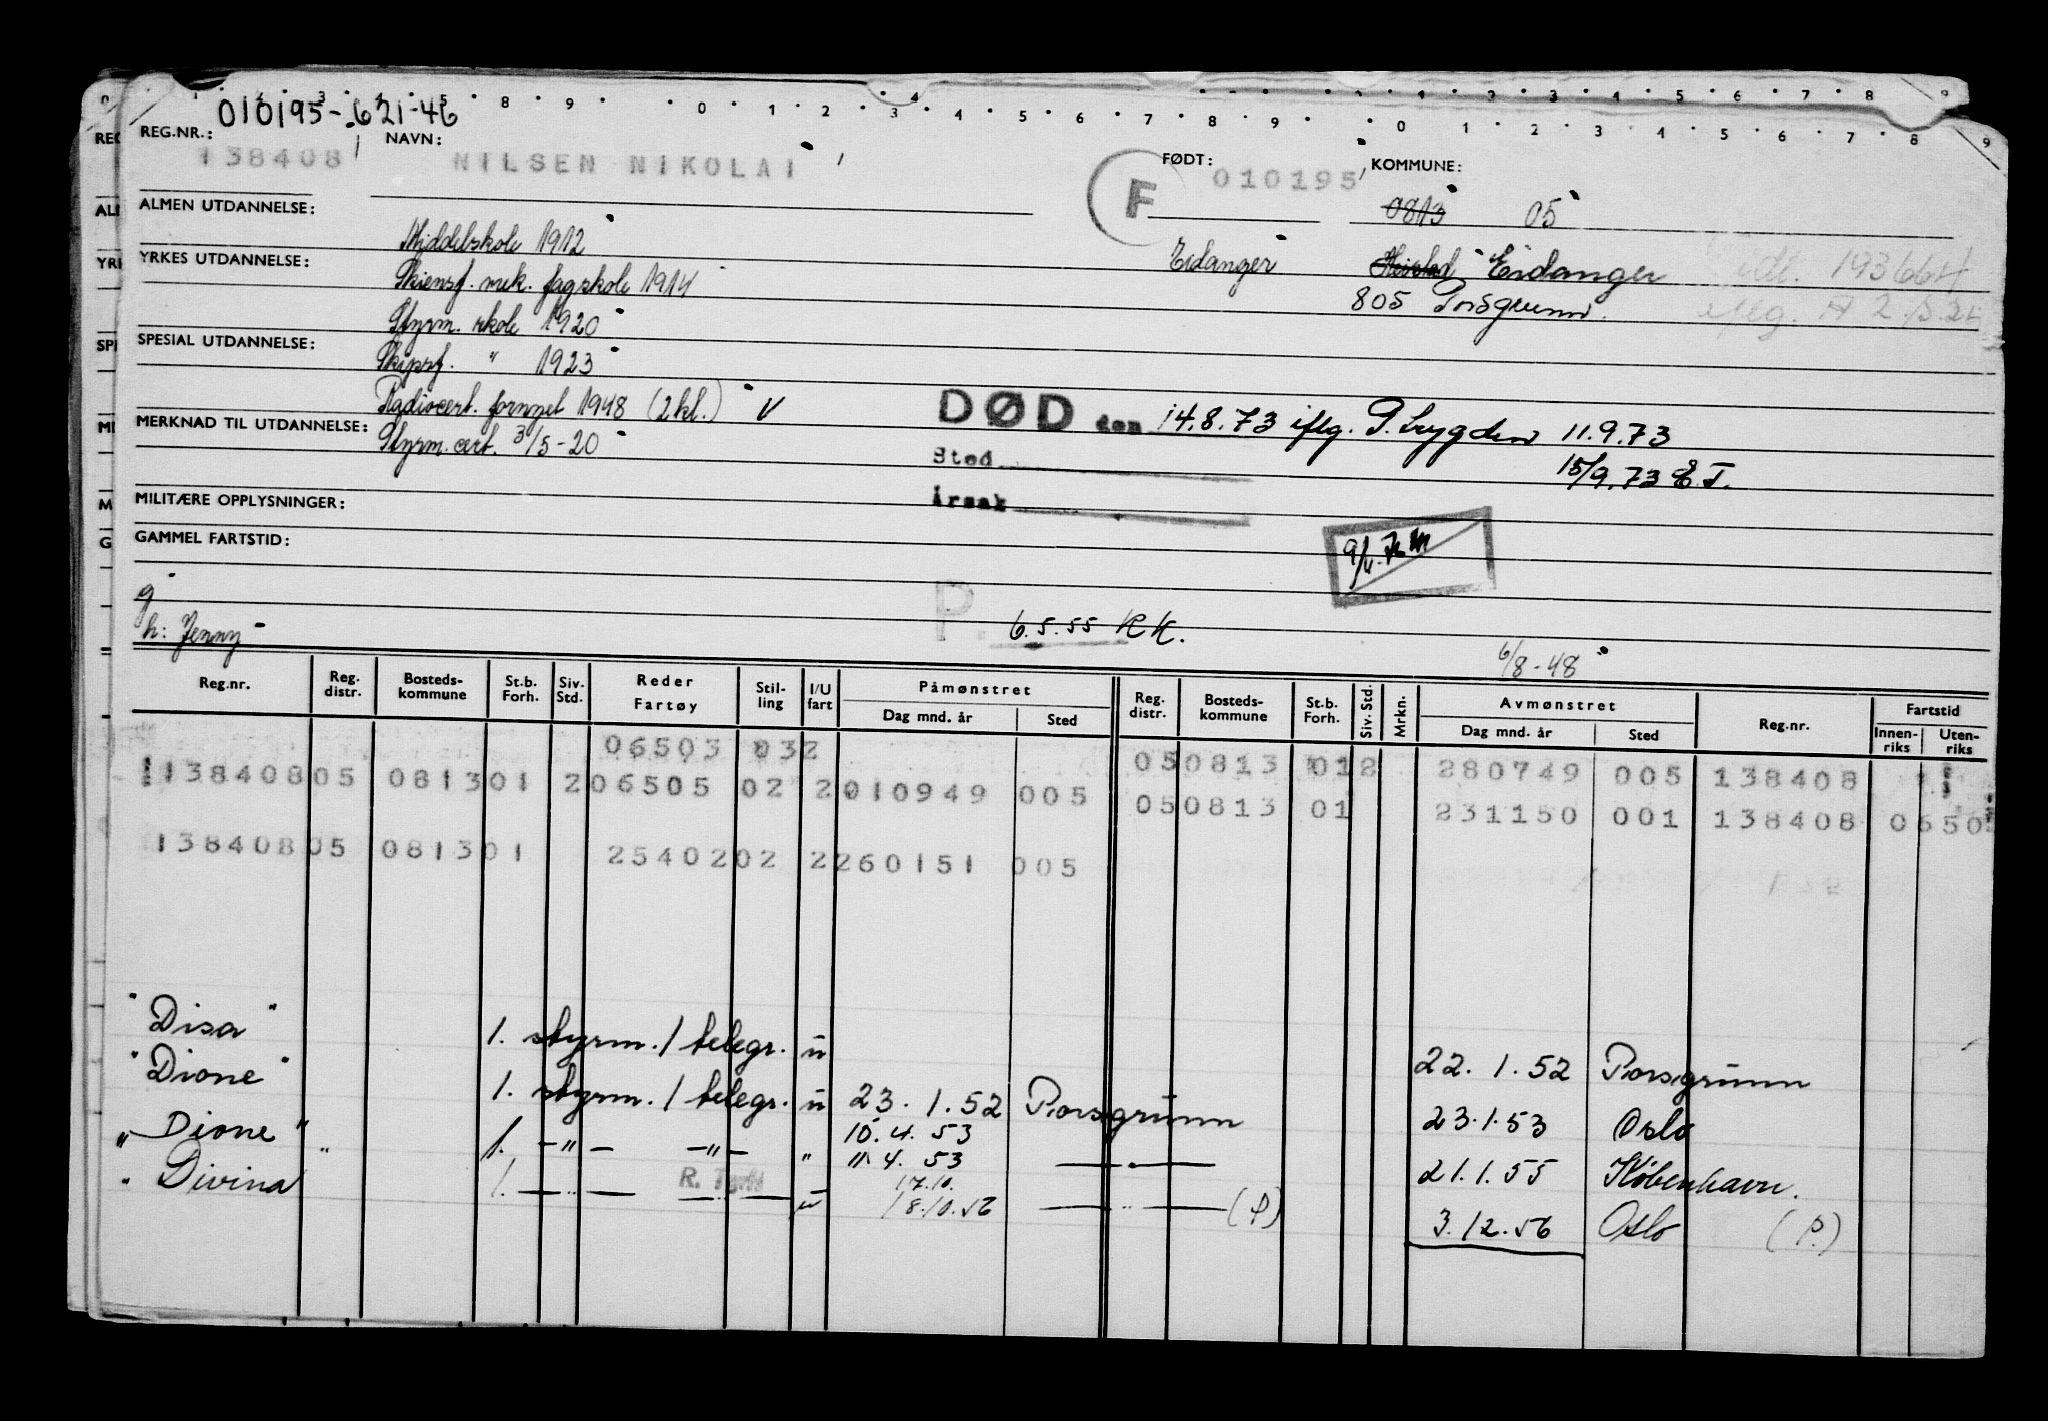 010195-621-46
REG.NR.: 138408
NAVN: NILSEN NIKOLAI
F
FØDT: 010195
KOMMUNE:
0813 05
ALMEN UTDANNELSE: Middelskole 1912
Eidanger
Eidanger
YRKES UTDANNELSE: Skiensf. mek. fagskole 1914
805 Porsgrunn.
Styrm. skole 1920
SPESIAL UTDANNELSE: Skipsf. " 1923
Radiocert. fornyet 1948 (2 kl.) V
DØD den 14.8.73 iflg. P. Lygden 11.9.73
MERKNAD TIL UTDANNELSE: Styrm. cert. 3/5-20
Sted
15/9.73 E.T.
Årsak
MILITÆRE OPPLYSNINGER:
GAMMEL FARTSTID:
g
P. 6.5.55 KK.
h: Jenny
6/8-48
Reg.nr. Reg. distr. Bosteds-kommune St.b. Forh. Siv. Std. Reder Fartøy Stil-ling I/U fart Påmønstret Dag mnd. år Sted Reg. distr. Bosteds-kommune St.b. Forh. Siv. Std. Mrkn. Avmønstret Dag mnd. år Sted Reg.nr. Fartstid Innen-riks Uten-riks
06503 032 050813 012 280749 005 138408
138408 05 0813 01 2 06505 02 2 010949 005 050813 01 231150 001 138408 0650
138408 05 0813 01 25402 02 2 260151 005
"Disa" 1. styrm. / telegr. u 22.1.52 Porsgrunn
"Dione" 1. styrm. / telegr. u 23.1.52 Porsgrunn 23.1.53 Oslo
10.4.53
"Dione" " 1. -"- -"- " 11.4.53 21.1.55 København.
17.10.
" Divina 1. — " — u 18.10.56 — " — (P) 3.12.56 Oslo (P.)